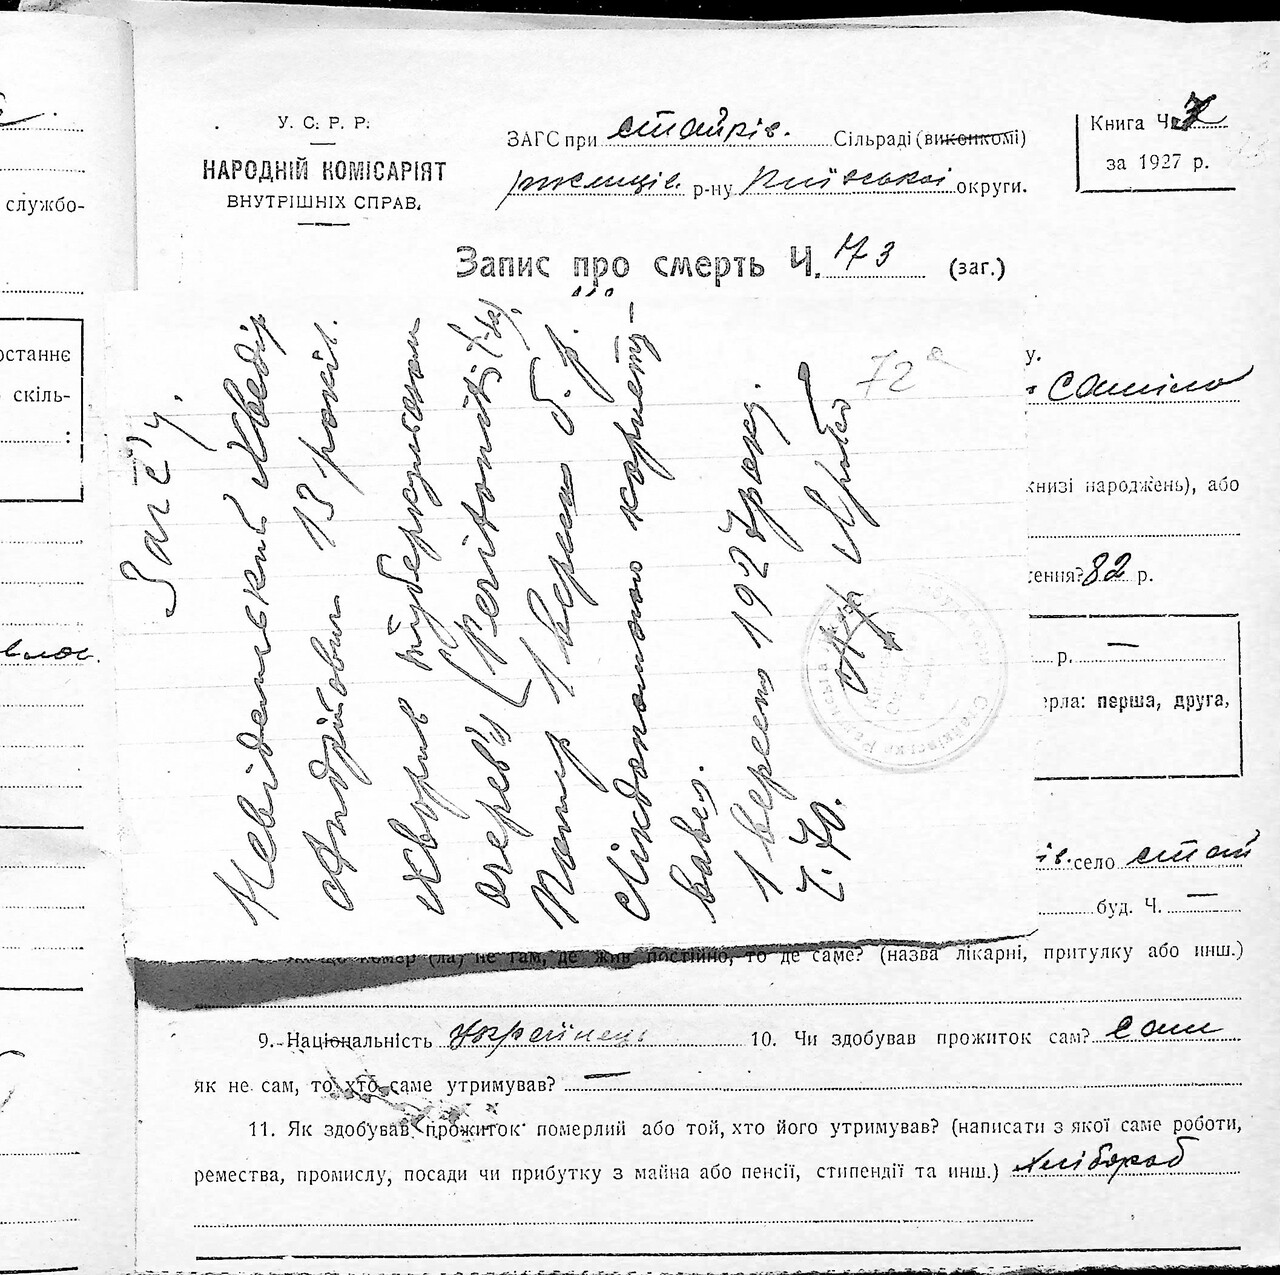 У. С. Р. Р.
НАРОДНІЙ КОМІСАРІЯТ
ВНУТРІШНІХ СПРАВ.
ЗАГС при стайків. Сільраді (виконкомі)
ржищів. р-ну Київської округи.
Книга Ч. 7
за 1927 р.
Запис про смерть Ч. 73 (заг.)
службо-
останнє
скіль-
:
Загс'у.
Невіденський
Андрійович 13 років.
Хворив туберкульозом
очерев'я (Peritonit t-ba)
Помер 1 вересн б. р.
Лікдопомогою користу-
вавсь.
1 вересн 1927 року.
72
у.
книзі народжень), або
ення? 82 р.
р. —
ерла: перша, друга,
ів. село стай
буд. Ч. —
помер (ла) не там, де жив постійно, то де саме? (назва лікарні, притулку або инш.)
9. Національність Українець 10. Чи здобував прожиток сам? Сам
як не сам, то хто саме утримував? —
11. Як здобував прожиток померлий або той, хто його утримував? (написати з якої саме роботи,
ремества, промислу, посади чи прибутку з майна або пенсії, стипендії та инш.) хлібороб